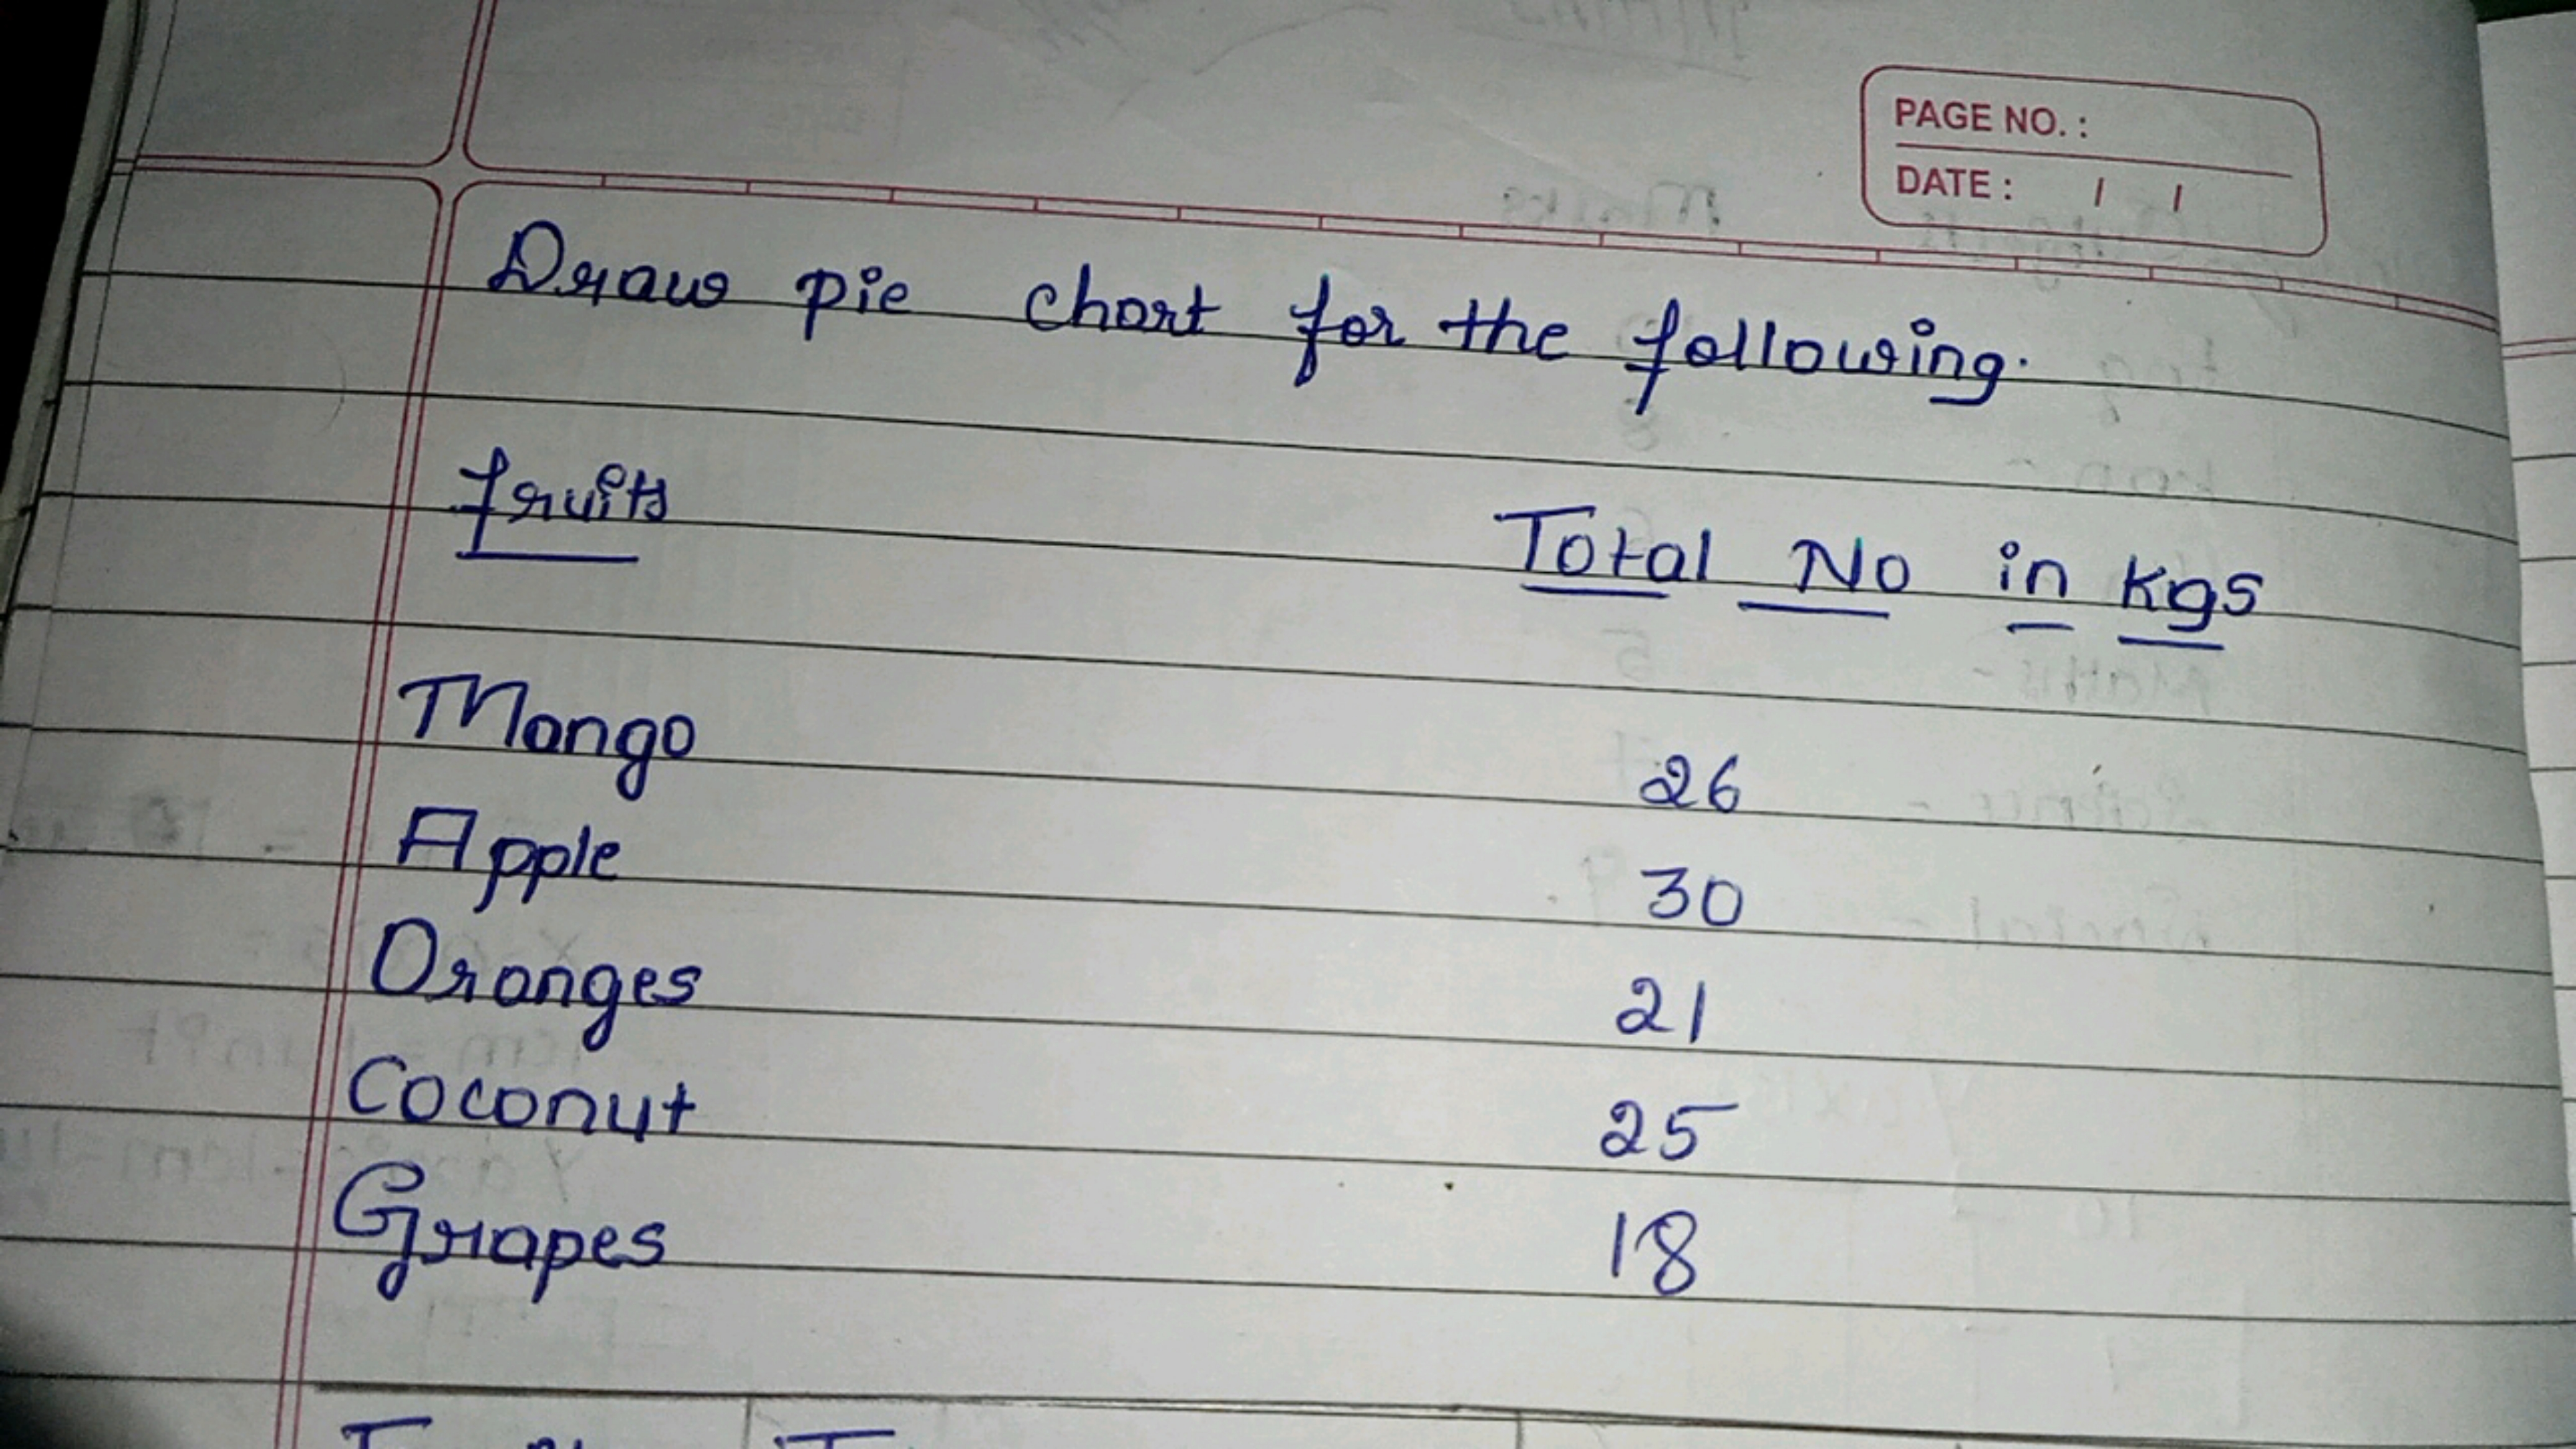 PAGE NO. :
DATE : / /
Draw pie chart for the following.
fruits Total No in kgs
Mango 26
Apple 30
Oranges 21
Coconut 25
Grapes 18